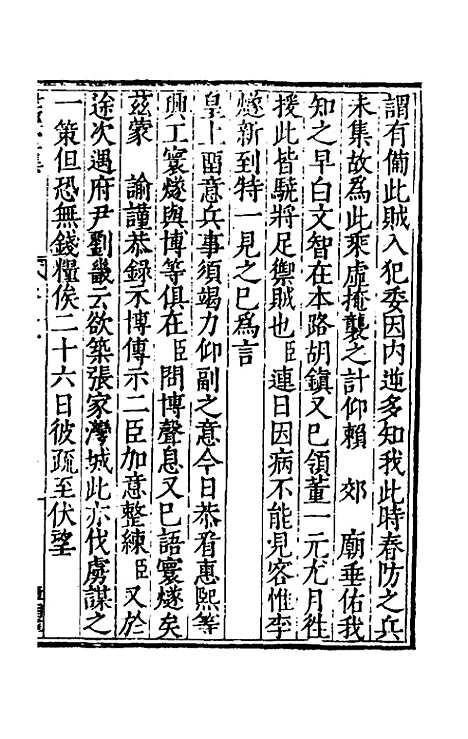 謂有備此賊入犯委因内逆多知我此時春防之兵
未集故爲此乘虛掩襲之計仰賴　郊　廟垂佑我
知之早白文智在本路胡鎮又巳領董一元尤月徃
援此皆驍將足禦賊也臣連日因病不能見客惟李
燧新到特一見之巳爲言
皇上畱意兵事須竭力仰副之意今日恭㸔惠熙等
興工寰燧與博等俱在臣問博聲息又巳語寰燧矣
茲蒙　諭謹恭錄示博傳示二臣加意整練臣又於
途次遇府尹劉畿云欲築張家灣城此亦伐虜謀之
一策但恐無錢糧俟二十六日彼疏至伏望